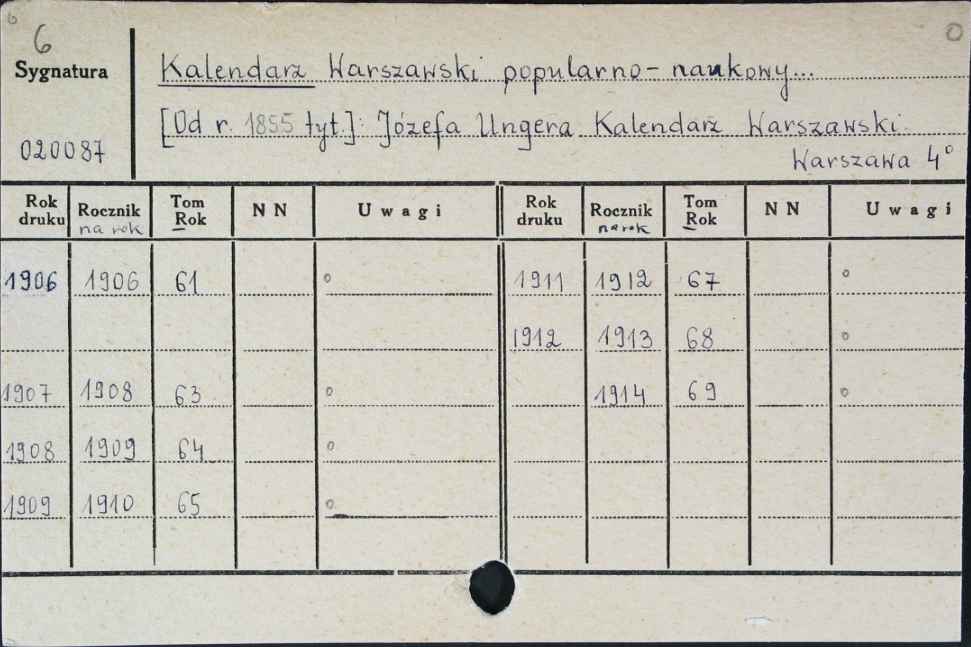 6
Sygnatura
020087
Kalendarz Warszawski popularno-naukowy...
[Od r. 1855 tyt.]: Józefa Ungera Kalendarz Warszawski.
Warszawa 4°
Rok druku Rocznik na rok Tom Rok NN Uwagi Rok druku Rocznik na rok Tom Rok NN Uwagi
1906 1906 61 ° 1911 1912 67 °
1912 1913 68 °
1907 1908 63 ° 1914 69 °
1908 1909 64 °
1909 1910 65 °